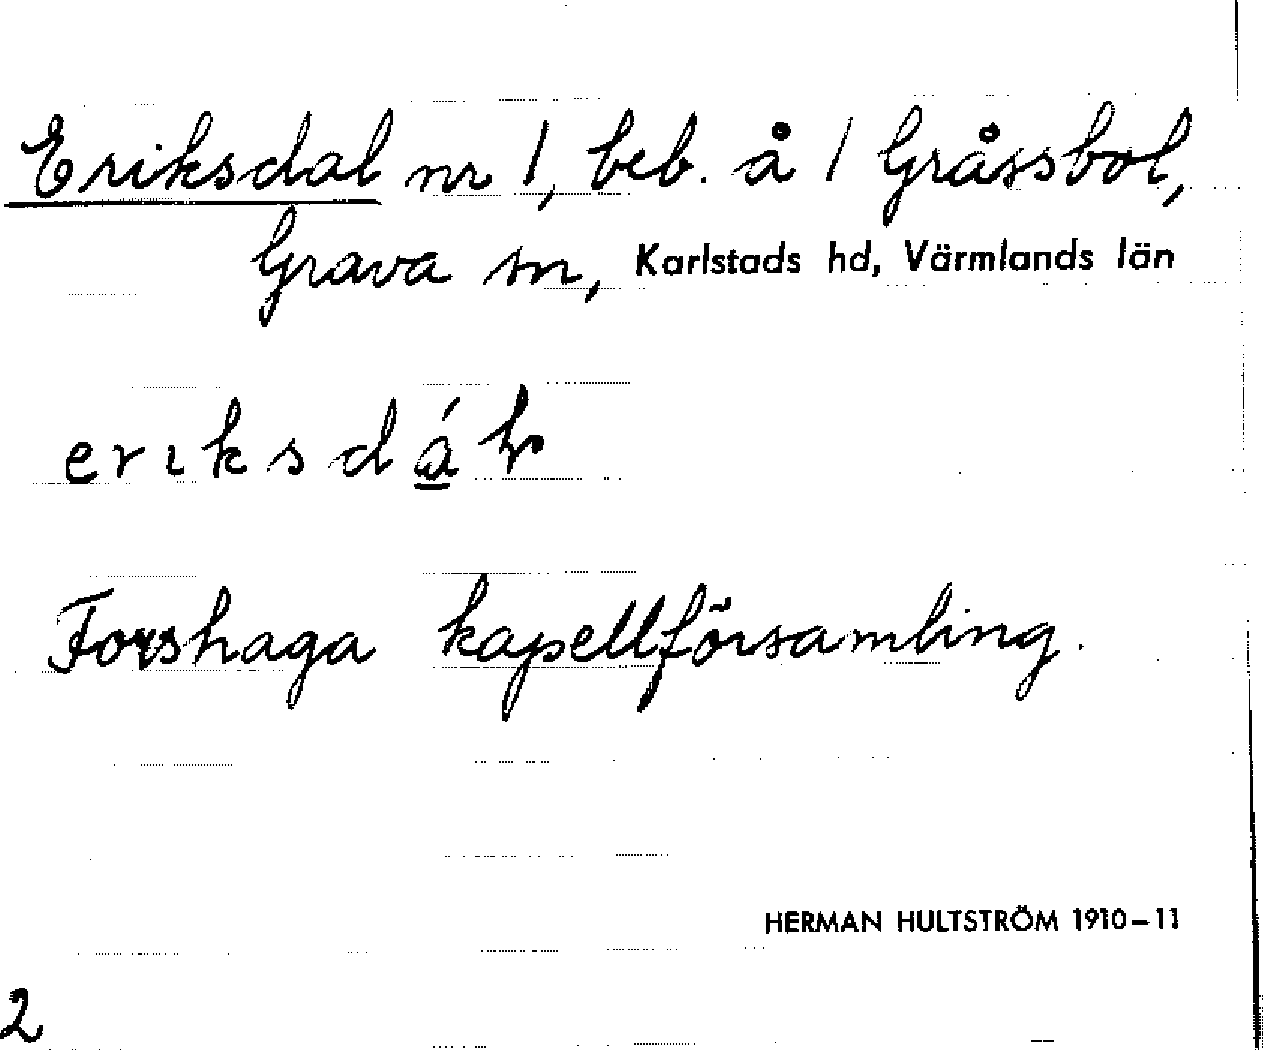 Eriksdal nr 1, beb. å 1 Gråssbol,
Grava sn, Karlstads hd, Värmlands län
eriksdá
Forshaga kapellförsamling.
HERMAN HULTSTRÖM 1910–11
2